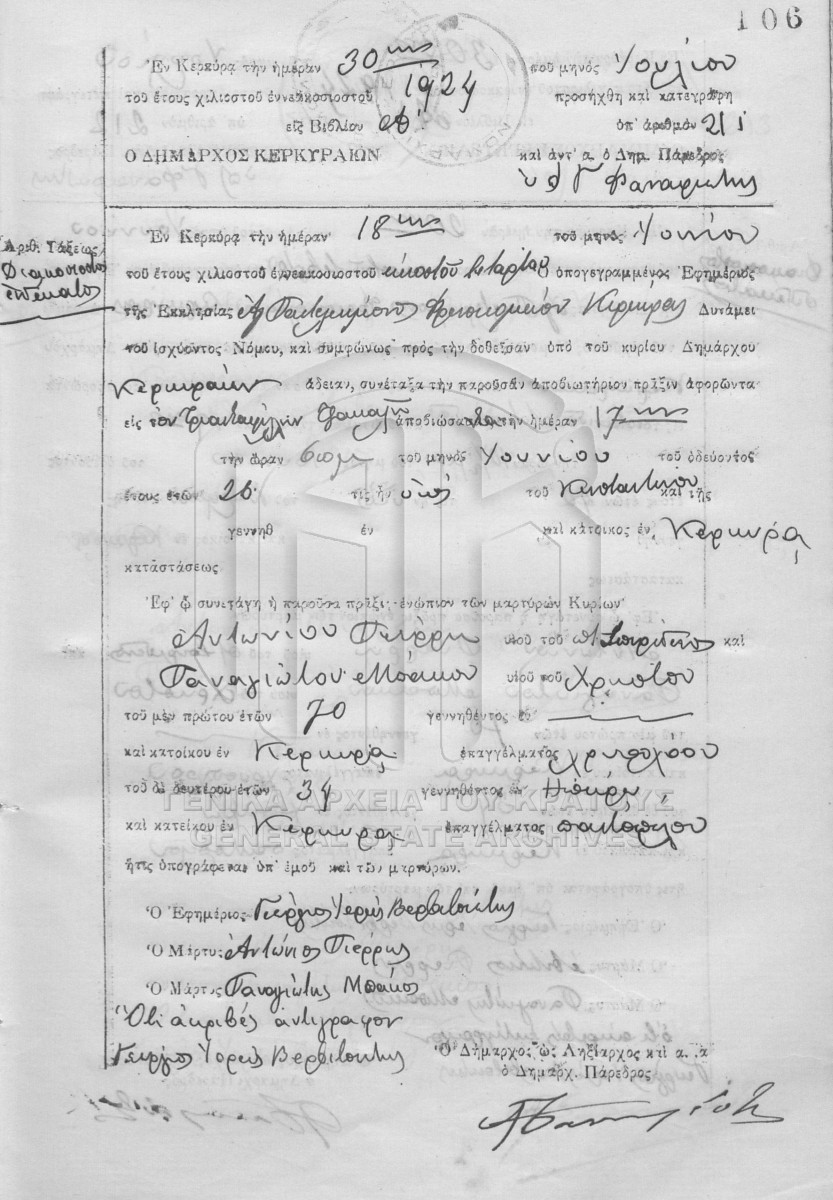 106
Ἐν Κερκύρᾳ τὴν ἡμέραν 30ην τοῦ μηνὸς Ἰουλίου
τοῦ ἔτους χιλιοστοῦ ἐννεακοσιοστοῦ 1924 προσήχθη καὶ κατεγράφη
εἰς Βιβλίον Α' ὑπ' ἀριθμὸν 211
Ο ΔΗΜΑΡΧΟΣ ΚΕΡΚΥΡΑΙΩΝ καὶ ἀντ' α. ὁ Δημ. Πάρεδρος
Φαναριώτης
Ἀριθ. Τάξεως
Διακοσιοστὸν
ἑνδέκατον
Ἐν Κερκύρᾳ τὴν ἡμέραν 18ην τοῦ μηνὸς Ἰουνίου
τοῦ ἔτους χιλιοστοῦ ἐννεακοσιοστοῦ εἰκοστοῦ τετάρτου ὁ ὑπογεγραμμένος Ἐφημέριος
τῆς Ἐκκλησίας Ἁγ Παντελεήμονος Κερκύρας Δυνάμει
τοῦ ἰσχύοντος Νόμου, καὶ συμφώνως πρὸς τὴν δοθεῖσαν ὑπὸ τοῦ κυρίου Δημάρχου
Κερκυραίων ἄδειαν, συνέταξα τὴν παροῦσαν ἀποβιωτήριον πρᾶξιν ἀφορῶντα
εἰς τὸν ἀποβιώσαντα τὴν ἡμέραν 17ην
τὴν ὥραν τοῦ μηνὸς Ἰουνίου τοῦ ὁδεύοντος
ἔτους ἐτῶν 26 τις ἦν υἱὸς τοῦ Κωνσταντίνου καὶ τῆς
γεννηθ ἐν καὶ κάτοικος ἐν Κερκύρᾳ
καταστάσεως
Ἐφ' ᾧ συνετάγη ἡ παροῦσα πρᾶξις ἐνώπιον τῶν μαρτύρων Κυρίων
Ἀντωνίου Πιέρρη υἱοῦ τοῦ Σπυρίδωνος καὶ
Παναγιώτου Μπάκου υἱοῦ τοῦ Χρήστου
τοῦ μὲν πρώτου ἐτῶν 70 γεννηθέντος ἐν
καὶ κατοίκου ἐν Κερκύρᾳ ἐπαγγέλματος χρυσοχόου
τοῦ δὲ δευτέρου ἐτῶν 34 γεννηθέντος ἐν Ἠπείρῳ
καὶ κατοίκου ἐν Κερκύρᾳ ἐπαγγέλματος παντοπώλου
ἥτις ὑπογράφεται ὑπ' ἐμοῦ καὶ τῶν μαρτύρων.
ΓΕΝΙΚΑ ΑΡΧΕΙΑ ΤΟΥ ΚΡΑΤΟΥΣ
GENERAL STATE ARCHIVES
Ὁ Ἐφημέριος Γεώργιος Ἱερεὺς Βερβιτσιώτης
Ὁ Μάρτυς Ἀντώνιος Πιέρρης
Ὁ Μάρτυς Παναγιώτης Μπάκος
Ὅτι ἀκριβὲς ἀντίγραφον
Γεώργιος Ἱερεὺς Βερβιτσιώτης
Ὁ Δήμαρχος ὡς Ληξίαρχος καὶ α. ἀ
ὁ Δημαρχ. Πάρεδρος